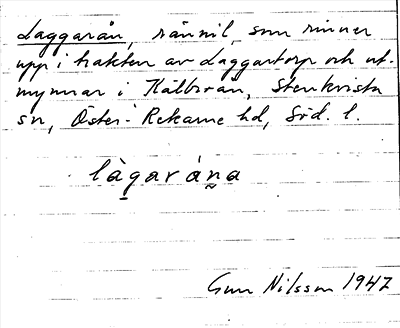 Laggarån, rännil, som rinner
upp i trakten av Laggartorp och ut-
mynnar i Kälbroån, Stenkvista
sn, Öster-Rekarne hd, Söd. l.
làgaråna
Gun Nilsson 1947